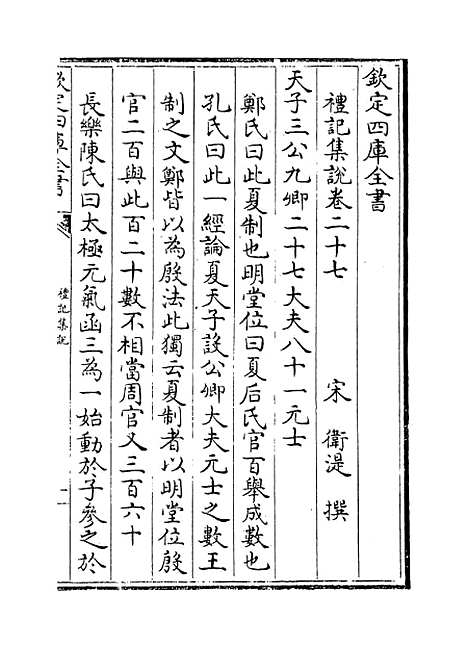 欽定四庫全書
禮記集說卷二十七　宋　衛湜　撰
天子三公九卿二十七大夫八十一元士
鄭氏曰此夏制也明堂位曰夏后氏官百舉成數也
孔氏曰此一經論夏天子設公卿大夫元士之數王
制之文鄭皆以為殷法此獨云夏制者以明堂位殷
官二百與此百二十數不相當周官又三百六十
長樂陳氏曰太極元氣函三為一始動於子參之於
欽定四庫全書
禮記集說